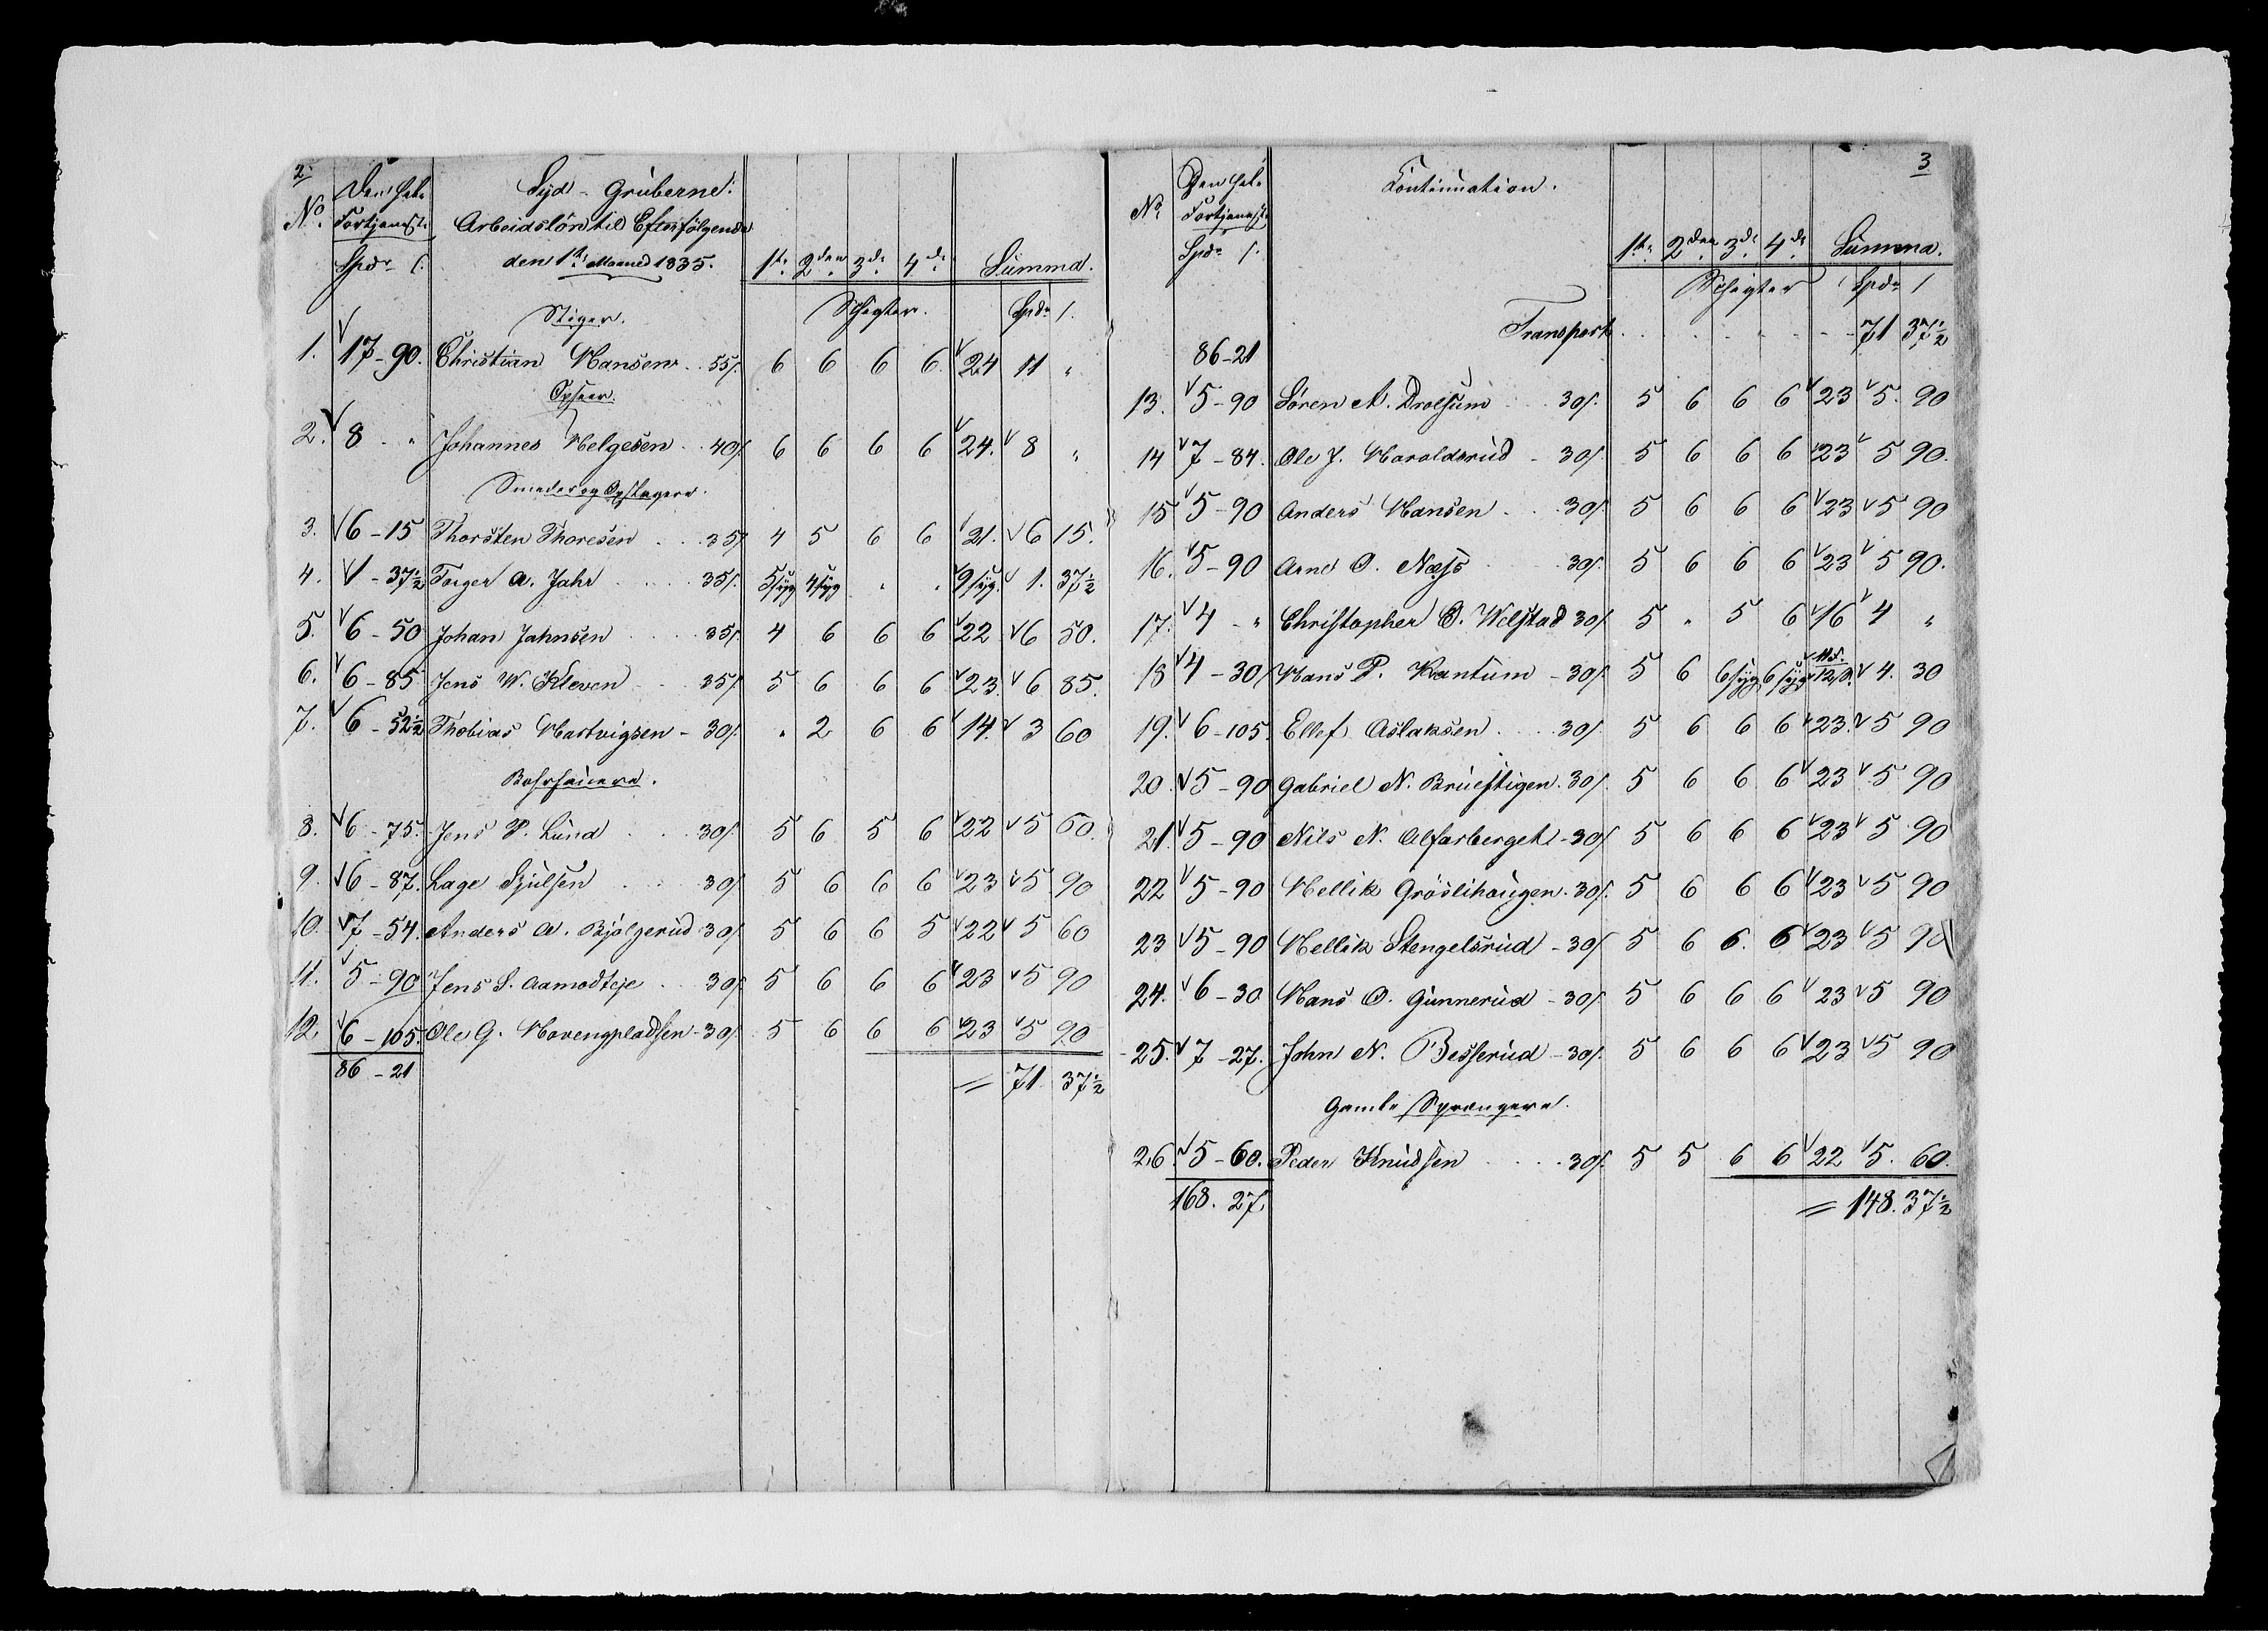 2.
No. Den hele Fortjeneste Spdr. s.
Syd-Gruberne.
Arbeidslön til Efterfölgende
den 1ste Maaned 1835.
1ste 2den 3de 4de Summa.
Schigter. Spdr s.
Stiger.
1. 17-90. Christian Hansen .. 55s. 6 6 6 6. 24 11 "
Opseer.
2. 8 - " Johannes Helgesen .. 40s. 6 6 6 6 24. 8 "
Smeder og Opslagere.
3. 6-15 Thorsten Thoresen .. 35s. 4 5 6 6 21. 6 15.
4. 1-37½ Torger A. Jahr .... 35s. 5 syg 4 syg " " 9 syg. 1. 37½
5. 6-50 Johan Jahnsen .... 35s. 4 6 6 6 22 6 50.
6. 6-85 Jens W. Kleven .. 35s. 5 6 6 6 23. 6 85.
7. 6-52½ Thobias Hartvigsen - 30s. " 2 6 6 14. 3 60
Borhauere.
8. 6-75. Jens P. Lund ... 30s. 5 6 5 6 22 5 60.
9. 6-87. Lage Hjulsen .... 30s. 5 6 6 6 23 5 90
10. 7-54. Anders A. Bjölgerud 30s. 5 6 6 5 22 5 60
11. 5-90 Jens S. Aamodteje .. 30s. 5 6 6 6 23 5 90
12. 6-105. Ole G. Hovengpladsen - 30s. 5 6 6 6 23 5 90
86-21 = 71 37½
3
No. Den hele Fortjeneste Spdr. s.
Continuation.
1ste 2den 3de 4de Summa.
Schigter Spdr s
Transport ...... 71 37½
86-21
13. 5-90 Sören A. Drolsum ... 30s. 5 6 6 6 23 5. 90
14 7-84. Ole J. Haraldsrud - 30s. 5 6 6 6 23 5 90.
15 5-90 Anders Hansen ... 30s. 5 6 6 6 23 5 90
16. 5-90 Arne O. Næss ... 30s. 5 6 6 6 23 5 90.
17. 4 - " Christopher O. Welstad 30s. 5 " 5 6 16 4 "
18 4-30 Hans P. Kantum - 30s. 5 6 6 syg 6 syg 12 s. 4. 30
19. 6-105. Ellef Aslaksen .... 30s. 5 6 6 6 23. 5 90
20. 5-90 Gabriel N. Bruestigen. 30s. 5 6 6 6 23 5 90
21. 5-90 Nils N. Alfarberget - 30s. 5 6 6 6 23 5 90
22 5-90 Hellik Gröslihaugen. 30s. 5 6 6 6 23 5 90
23 5-90 Hellik Stengelsrud - 30s. 5 6 6. 6 23 5 90
24. 6-30 Hans O. Gunnerud - 30s. 5 6 6 6 23 5 90
25. 7-27. John N. Besserud - 30s. 5 6 6 6 23 5 90
Gamle Sprængere.
26. 5-60. Peder Knudsen .... 30s. 5 5 6 6 22 5. 60.
168. 27. = 148. 37½